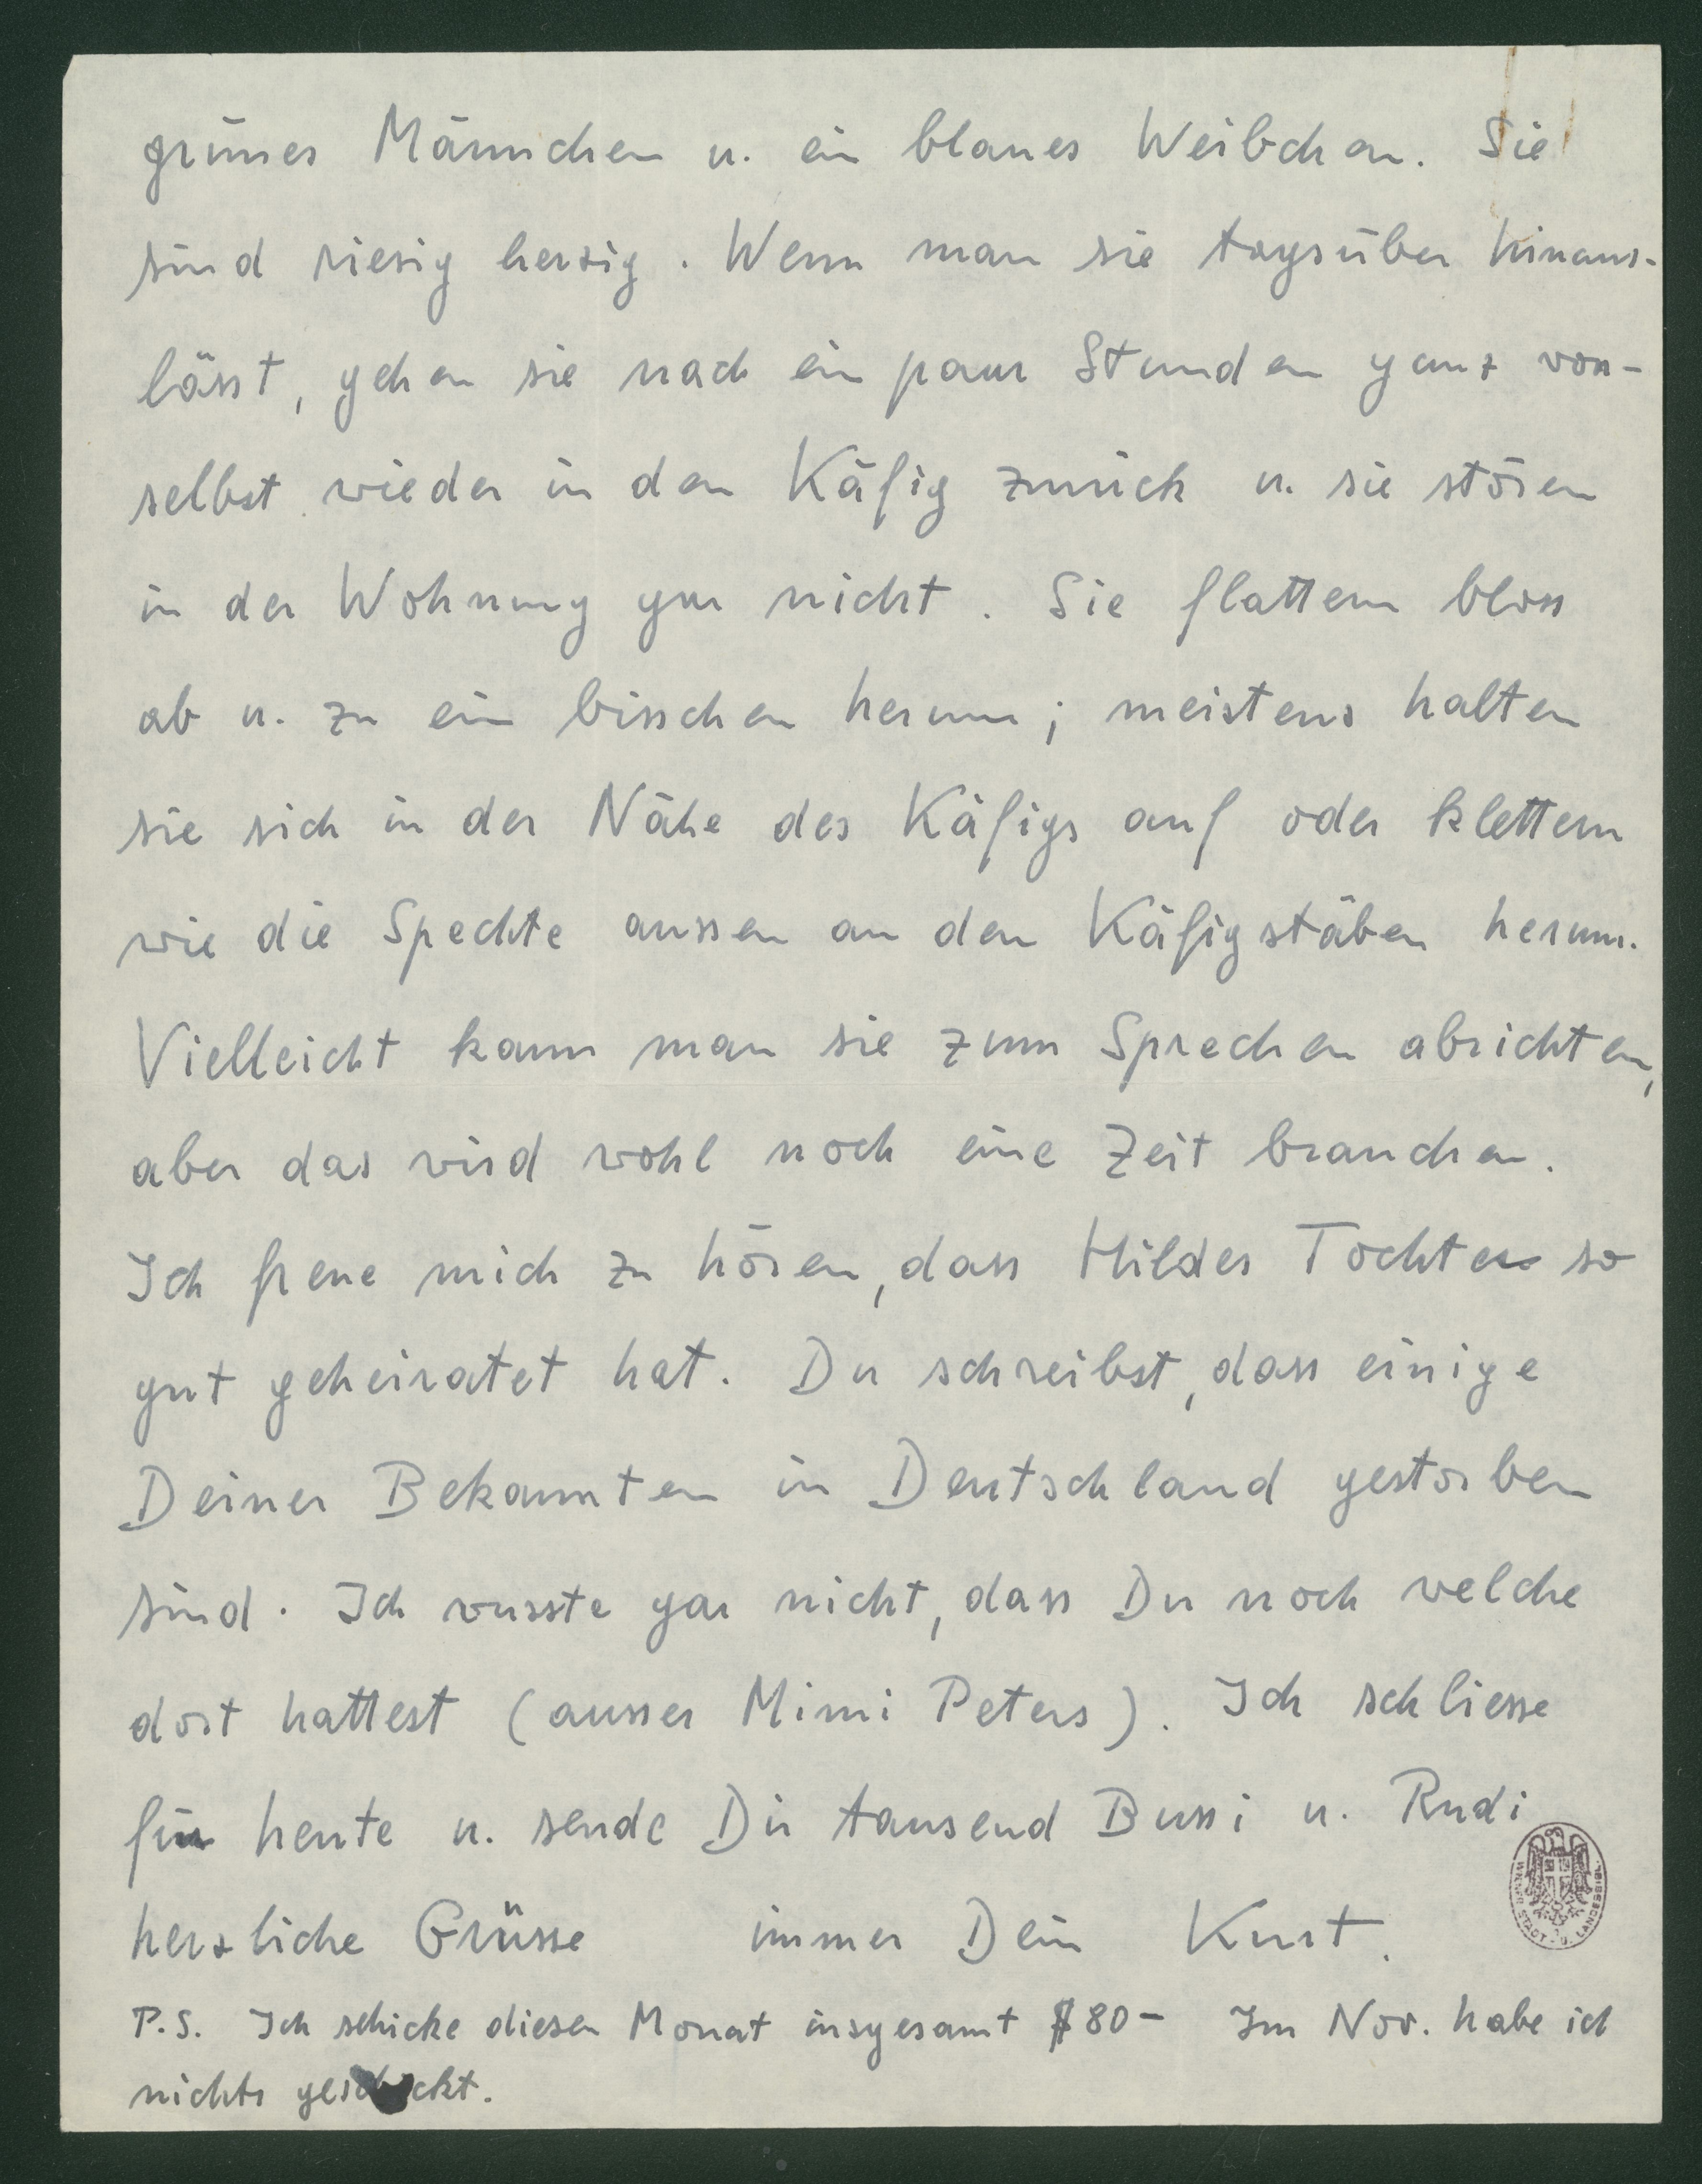 grünes Männchen u. ein blaues Weibchen. Sie
sind riesig herzig. Wenn man sie tagsüber hinaus-
lässt, gehen sie nach ein paar Stunden ganz von-
selbst wieder in den Käfig zurück u. sie stören
in der Wohnung gar nicht. Sie flattern bloss
ab u. zu ein bisschen herum; meistens halten
sie sich in der Nähe des Käfigs auf oder klettern
wie die Spechte aussen an den Käfigstäben herum.
Vielleicht kann man sie zum Sprechen abrichten,
aber das wird wohl noch eine Zeit brauchen.
Ich freue mich zu hören, dass Hildes Tochter so
gut geheiratet hat. Du schreibst, dass einige
Deiner Bekannten in Deutschland gestorben
sind. Ich wusste gar nicht, dass Du noch welche
dort hattest (ausser Mimi Peters). Ich schliesse
für heute u. sende Dir tausend Bussi u. Rudi
herzliche Grüsse immer Dein Kurt.
WIENER STADT- U. LANDESBIBL.
P.S. Ich schicke diesen Monat insgesamt $80- Im Nov. habe ich
nichts geschickt.